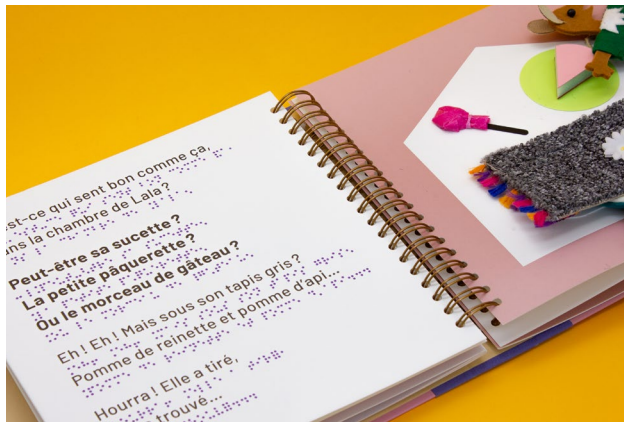 st-ce qui sent bon comme ça,
ns la chambre de Lala ?
Peut-être sa sucette ?
La petite pâquerette ?
Ou le morceau de gâteau ?
Eh ! Eh ! Mais sous son tapis gris ?
Pomme de reinette et pomme d'api...
Hourra ! Elle a tiré,
trouvé...